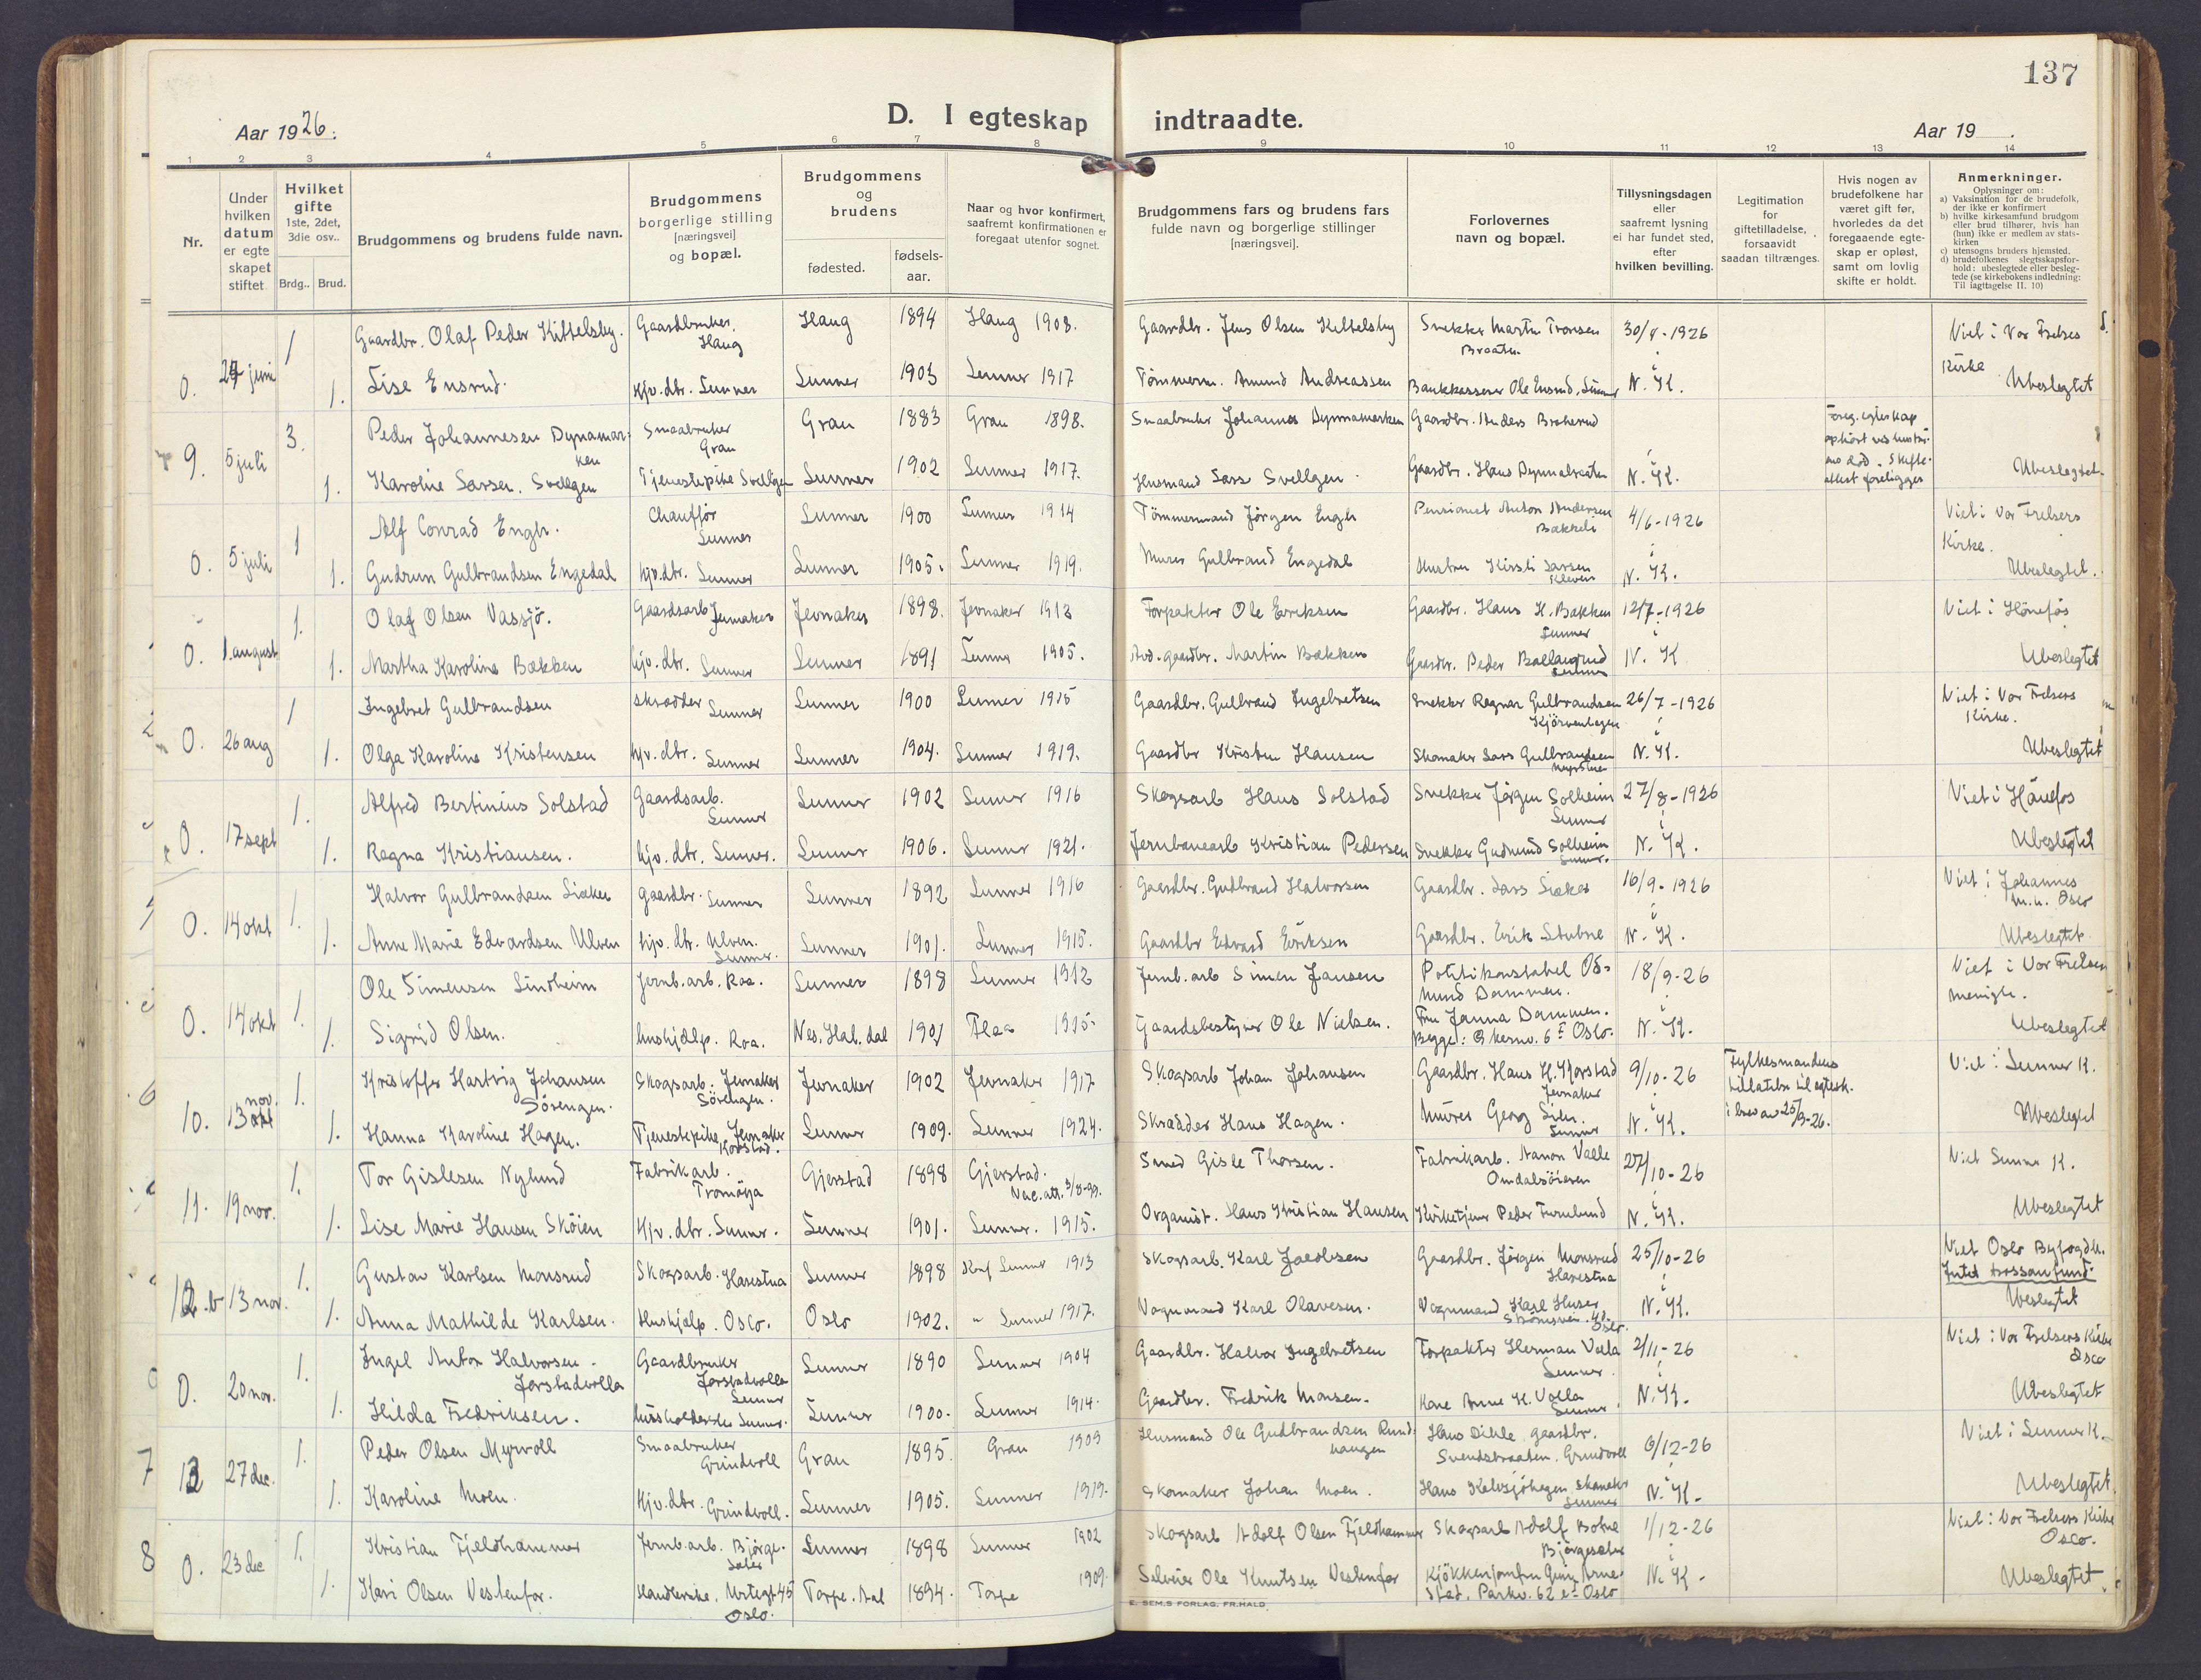 137
Aar 1926.
D. I egteskap indtraadte.
Aar 19
1 2 3 4 5 6 7 8 9 10 11 12 13 14
Nr.
Under hvilken datum er egteskapet stiftet
Hvilket gifte 1ste, 2det, 3die osv..
Brdg..
Brud.
Brudgommens og brudens fulde navn.
Brudgommens borgerlige stilling [næringsvei] og bopæl.
Brudgommens og brudens
fødested.
fødsels-aar.
Naar og hvor konfirmert, saafremt konfirmationen er foregaat utenfor sognet.
Brudgommens fars og brudens fars fulde navn og borgerlige stillinger [næringsvei].
Forlovernes navn og bopæl.
Tillysningsdagen eller saafremt lysning ei har fundet sted, efter hvilken bevilling.
Legitimation for giftetilladelse, forsaavidt saadan tiltrænges.
Hvis nogen av brudefolkene har været gift før, hvorledes da det foregaaende egteskap er opløst, samt om lovlig skifte er holdt.
Anmerkninger.
Oplysninger om:
a) Vaksination for de brudefolk, der ikke er konfirmert
b) hvilke kirkesamfund brudgom eller brud tilhører, hvis han (hun) ikke er medlem av statskirken
c) utensogns bruders hjemsted.
d) brudefolkenes slegtsskapsforhold: ubeslegtede eller beslegtede (se kirkebokens indledning: Til iagttagelse II. 10)
1 Gaardbr. Olaf Peder Kittelsby. Gaardbruker. Haug Haug 1894 Haug 1908. Gaardbr. Jens Olsen Kittelsby Snekker Martin Tronsen Braaten 30/4-1926 Viet i Vor Frelsers Kirke
0. juni 1. Lise Ensrud. hjv. dtr. Lunner Lunner 1903 Lunner 1917 Tømmerm. Amund Andreassen Bankkasserer Ole Ensrud, Lunner i N. K. Ubeslegtet
3. Peder Johannesen Dynamarken Smaabruker Gran Gran 1883 Gran 1898. Smaabruker Johannes Dynnamarken Gaardbr. Anders Foreg. egteskap ophørt ved hustruens død. Skifteattest foreligges
9. 5 juli 1. Karoline Larsen. Svellgen Tjenestepike Svellgen Lunner 1902 Lunner 1917. Husmand Lars Svellgen. Gaardbr. Hans i N. K. Ubeslegtet.
1 Alf Conrad Engh. Chauffør Lunner Lunner 1900 Lunner 1914 Tømmermand Jørgen Engh Pensionist Anton Andersen Bakkeli 4/6-1926 Viet i Vor Frelsers Kirke.
0. 5 juli 1. Gudrun Gulbrandsen Engedal hjv. dtr. Lunner Lunner 1905. Lunner 1919. Murer Gulbrand Engedal Hustru Kirsti Larsen Kleven i N. K. Ubeslegtet.
1. Olaf Olsen Vassjø. Gaardsarb Jevnaker Jevnaker 1898. Jevnaker 1913 Forpakter Ole Eriksen Gaardbr. Hans H. Bakken Lunner 12/7-1926 Viet i Hønefos
0. 1. august 1. Martha Karoline Bækken hjv. dtr. Lunner Lunner 1891 Lunner 1905. Avd. gaardbr. Martin Bækken Gaardbr. Peder Ballangrud Lunner i N. K Ubeslegtet
1 Ingebret Gulbrandsen skrædder Lunner Lunner 1900 Lunner 1915 Gaardbr. Gulbrand Ingebretsen Snekker Ragnar Gulbrandsen Kjørvenhagen 26/7-1926 Viet i Vor Frelsers Kirke.
0. 26 aug 1. Olga Karoline Kristensen hjv. dtr. Lunner Lunner 1904. Lunner 1919. Gaardbr Kristen Hansen Skomaker Lars Gulbrandsen i N. K. Ubeslegtet
1. Alfred Bertinius Solstad Gaardsarb. Lunner Lunner 1902 Lunner 1916 Skogsarb Hans Solstad Snekker Jørgen Solheim Lunner 27/8-1926 Viet i Hønefos
0. 17 sept 1. Ragna Kristiansen. hjv. dtr. Lunner. Lunner 1906. Lunner 1921. Jernbanearb Kristian Pedersen Snekker Gudmund Solheim Lunner. i N. K. Ubeslegtet
1. Halvor Gulbrandsen Sieker gaardbr. Lunner Lunner 1892 Lunner 1916 Gaardbr. Gudbrand Halvorsen Gaardbr. Lars Sieker 16/9-1926 Viet i Johannes m.n. Oslo
0. 14 okt 1. Anne Marie Edvardsen Ulven hjv. dtr. Ulven. Lunner. Lunner 1901. Lunner 1915. Gaardbr Edvard Eriksen Gaardbr. Erik Stubne i N. K. Ubeslegtet
1. Ole Simensen Lindheim Jernb. arb. Roa. Lunner 1898 Lunner 1912 Jernb. arb Simen Jansen Politikonstabel Osmund Dammen. 18/9-26 Viet i Vor Frelsers menigh.
0. 14 okt 1. Sigrid Olsen. hushjælp. Roa. Nes, Hal. dal 1901 Flaa 1915. Gaardsbestyrer Ole Nielsen. Fru Janna Dammen. Begge: Akersv. 6 Oslo. i N. K. Ubeslegtet
1. Kristoffer Hartvig Johansen Sørengen. Skogsarb. Jevnaker Sørengen. Jevnaker 1902 Jevnaker 1917 Skogsarb Johan Johansen Gaardbr. Hans H. Korstad Jevnaker 9/10-26 Fylkesmandens tillatelse til egtesk. i brev av 25/9-26. Viet i Lunner K.
10. 13 nov. okt 1. Hanna Karoline Hagen. Tjenestepike, Jevnaker Korstad. Lunner 1909. Lunner 1924. Skrædder Hans Hagen. Murer Georg Lien. Lunner i N. K. Ubeslegtet
1. Tor Gislesen Nylund Fabrikarb. Tromøya Gjerstad 1898 Gjerstad. Vac. att. 3/8-99. Smed Gisle Thorsen. Fabrikarb. Valle Omdalsøieren 27/10-26 Viet Lunner K.
11. 19 nov. 1. Lise Marie Hansen Skøien Hjv. dtr. Lunner. Lunner 1901. Lunner. 1915. Organist. Hans Kristian Hansen Kirketjener Peder Furulund i N. K. Ubeslegtet
1. Gustav Karlsen Monsrud Skogsarb. Harestua Lunner 1898 Konf Lunner 1913 Skogsarb. Karl Jacobsen Gaardbr. Jørgen Monsrud Harestua 25/10-26 Viet Oslo Byfogdk. Intet trossamfund.
12.b 13 nov. 1. Anna Mathilde Karlsen. Hushjælp. Oslo. Oslo 1902. " Lunner 1917. Vognmand Karl Olavesen. Vognmand Karl Huser Oslo. i N. K. Ubeslegtet
1. Ingel Anton Halvorsen. Jorstadvolla Gaardbruker Jorstadvolla Lunner Lunner 1890 Lunner 1904 Gaardbr. Halvor Ingebretsen Forpakter Herman Volla Lunner. 2/11-26 Viet i Vor Frelsers Kirke Oslo
0. 20 nov. 1. Hilda Fredriksen. husholderske Lunner. Lunner 1900. Lunner 1914. Gaardbr. Fredrik Monsen. Kone Anne K. Volla Lunner. i N. K. Ubeslegtet
1. Peder Olsen Myrvoll Smaabruker Grindvoll Gran 1895. Gran 1909 Husmand Ole Gudbrandsen Rundhaugen Hans Dihle gaardbr. Svendsbraaten. Grindvoll 6/12-26 Viet i Lunner K.
13 27 dec. 1. Karoline Moen. Hjv. dtr. Grindvoll. Lunner 1905. Lunner 1919. Skomaker Johan Moen. Hans Kalvsjøhagen skomaker Lunner i N. K. Ubeslegtet.
1. Kristian Fjeldhammer Jernb. arb. Bjørgesæter Lunner 1898 Lunner 1902 Skogsarb Adolf Olsen Fjeldhammer Skogsarb Adolf Bjørgesæter 1/12-26 Viet i Vor Frelsers Kirke Oslo.
0. 23 dec 1. Kari Olsen Vestenfor. Handlerske. Urtegt. 45 Oslo. Torpe. Aal 1894. Torpe 1909. Selveier Ole Knutsen Vestenfor Kjøkkenjomfru Parkv. 62 Oslo i N. K. Ubeslegtet.
E. SEM.S FORLAG, FR.HALD